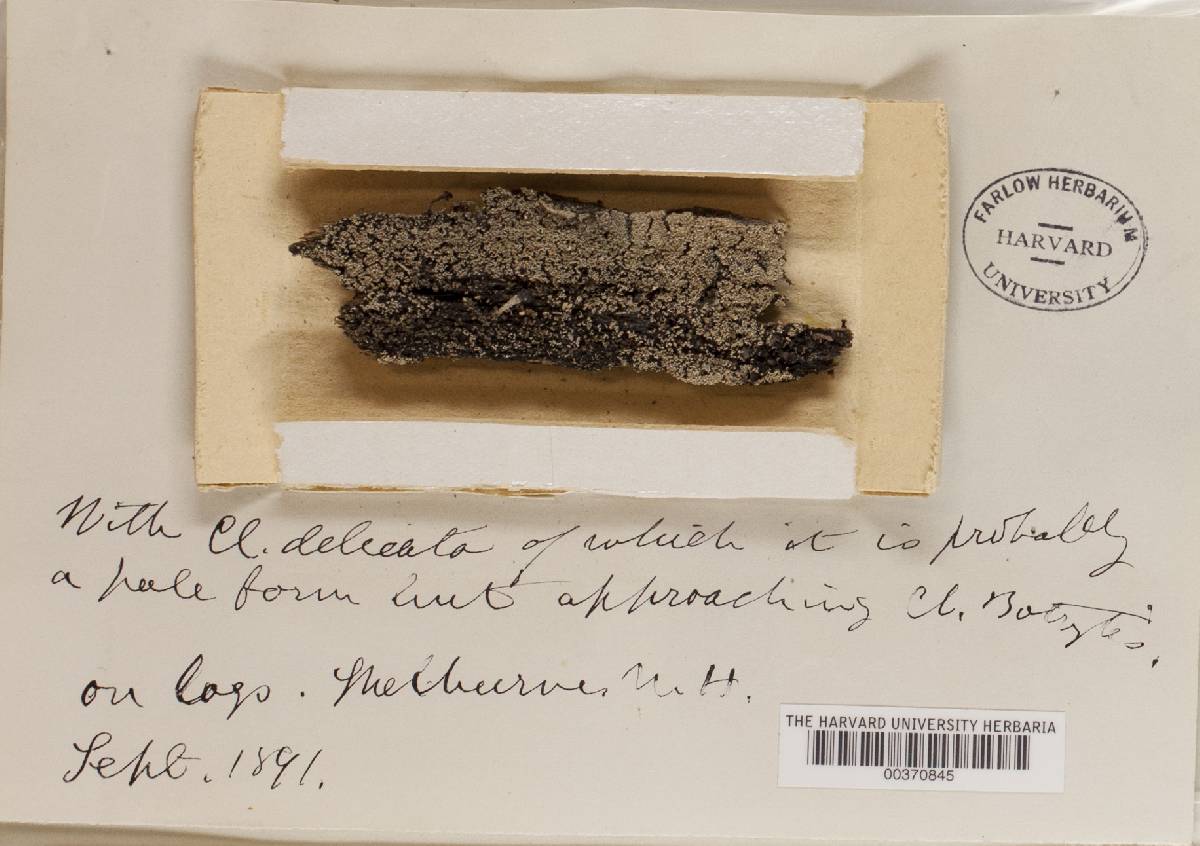 FARLOW HERBARIUM
HARVARD
UNIVERSITY
With Cl. delicata of which it is probably
a pale form but approaching Cl. Botrytis.
on logs. Shelburne, N. H.
Sept. 1891.
THE HARVARD UNIVERSITY HERBARIA
00370845